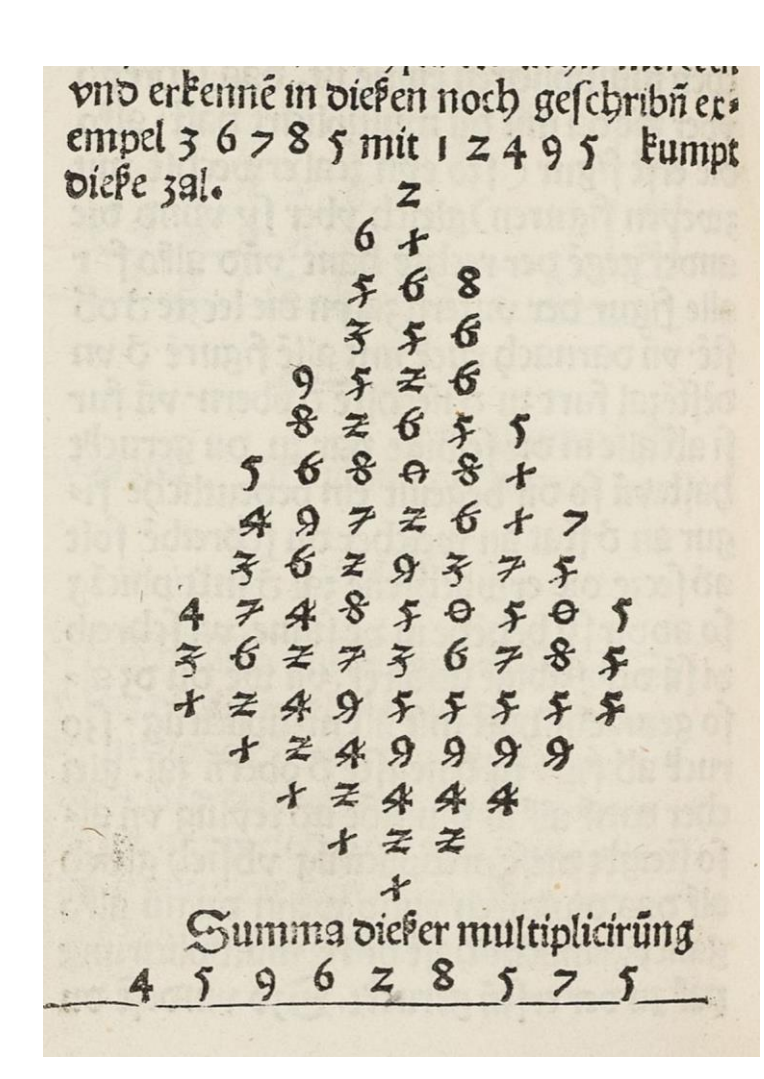 vnd erkennē in dießen noch geſchribn̄ ex⸗
empel 3 6 7 8 5 mit 1 2 4 9 5 kumpt
dieße zal.
2
6 1
5 6 8
3 5 6
9 5 2 6
8 2 6 5 5
5 6 8 0 8 1
4 9 7 2 6 1 7
3 6 2 9 3 7 5
4 7 4 8 5 0 5 0 5
3 6 2 7 3 6 7 8 5
1 2 4 9 5 5 5 5 5
1 2 4 9 9 9 9
1 2 4 4 4
1 2 2
1
Summa dießer multiplicirūng
4 5 9 6 2 8 5 7 5